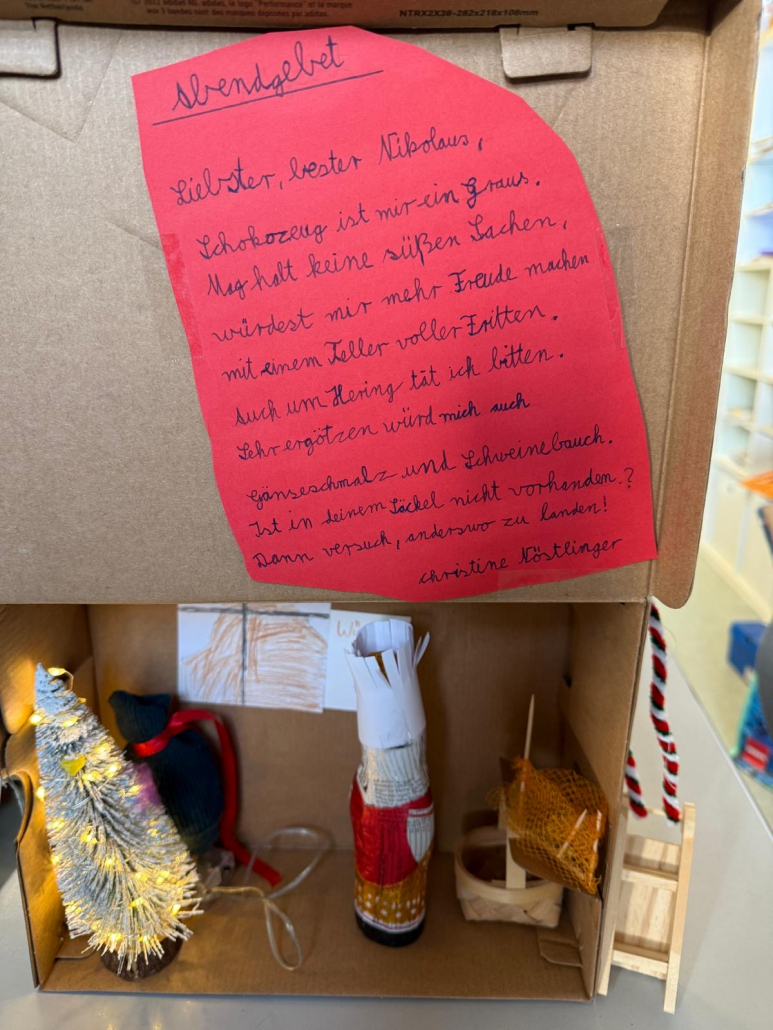 © 2012 adidas AG. adidas, the logo "Performance" and the 3-Stripes mark
NTRX2X38-282x218x108mm
The Netherlands
Abendgebet
Liebster, bester Nikolaus,
Schokozeug ist mir ein Graus.
Mag halt keine süßen Sachen,
würdest mir mehr Freude machen
mit einem Teller voller Fritten.
Auch um Hering tät ich bitten.
Sehr ergötzen würd mich auch
Gänseschmalz und Schweinebauch.
Ist in deinem Säckel nicht vorhanden?
Dann versuch, anderswo zu landen!
Christine Nöstlinger